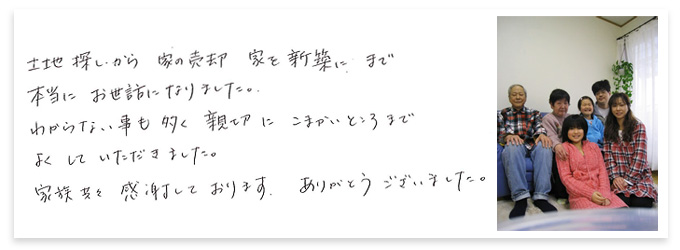 土地探しから 家の売却 家を新築に まで
本当に お世話になりました。
わからない事も 多く 親切に こまかいところまで
よく していただきました。
家族共々 感謝して おります。 ありがとう ございました。